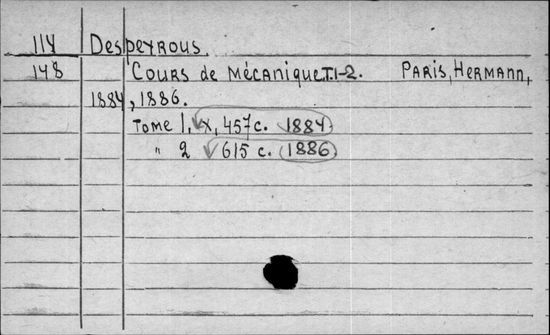 114 Despeyrous.
148 Cours de Mécanique T.1-2. Paris, Hermann,
1884, 1886.
Tome 1. x, 457 c. 1884.
" 2 615 c. 1886